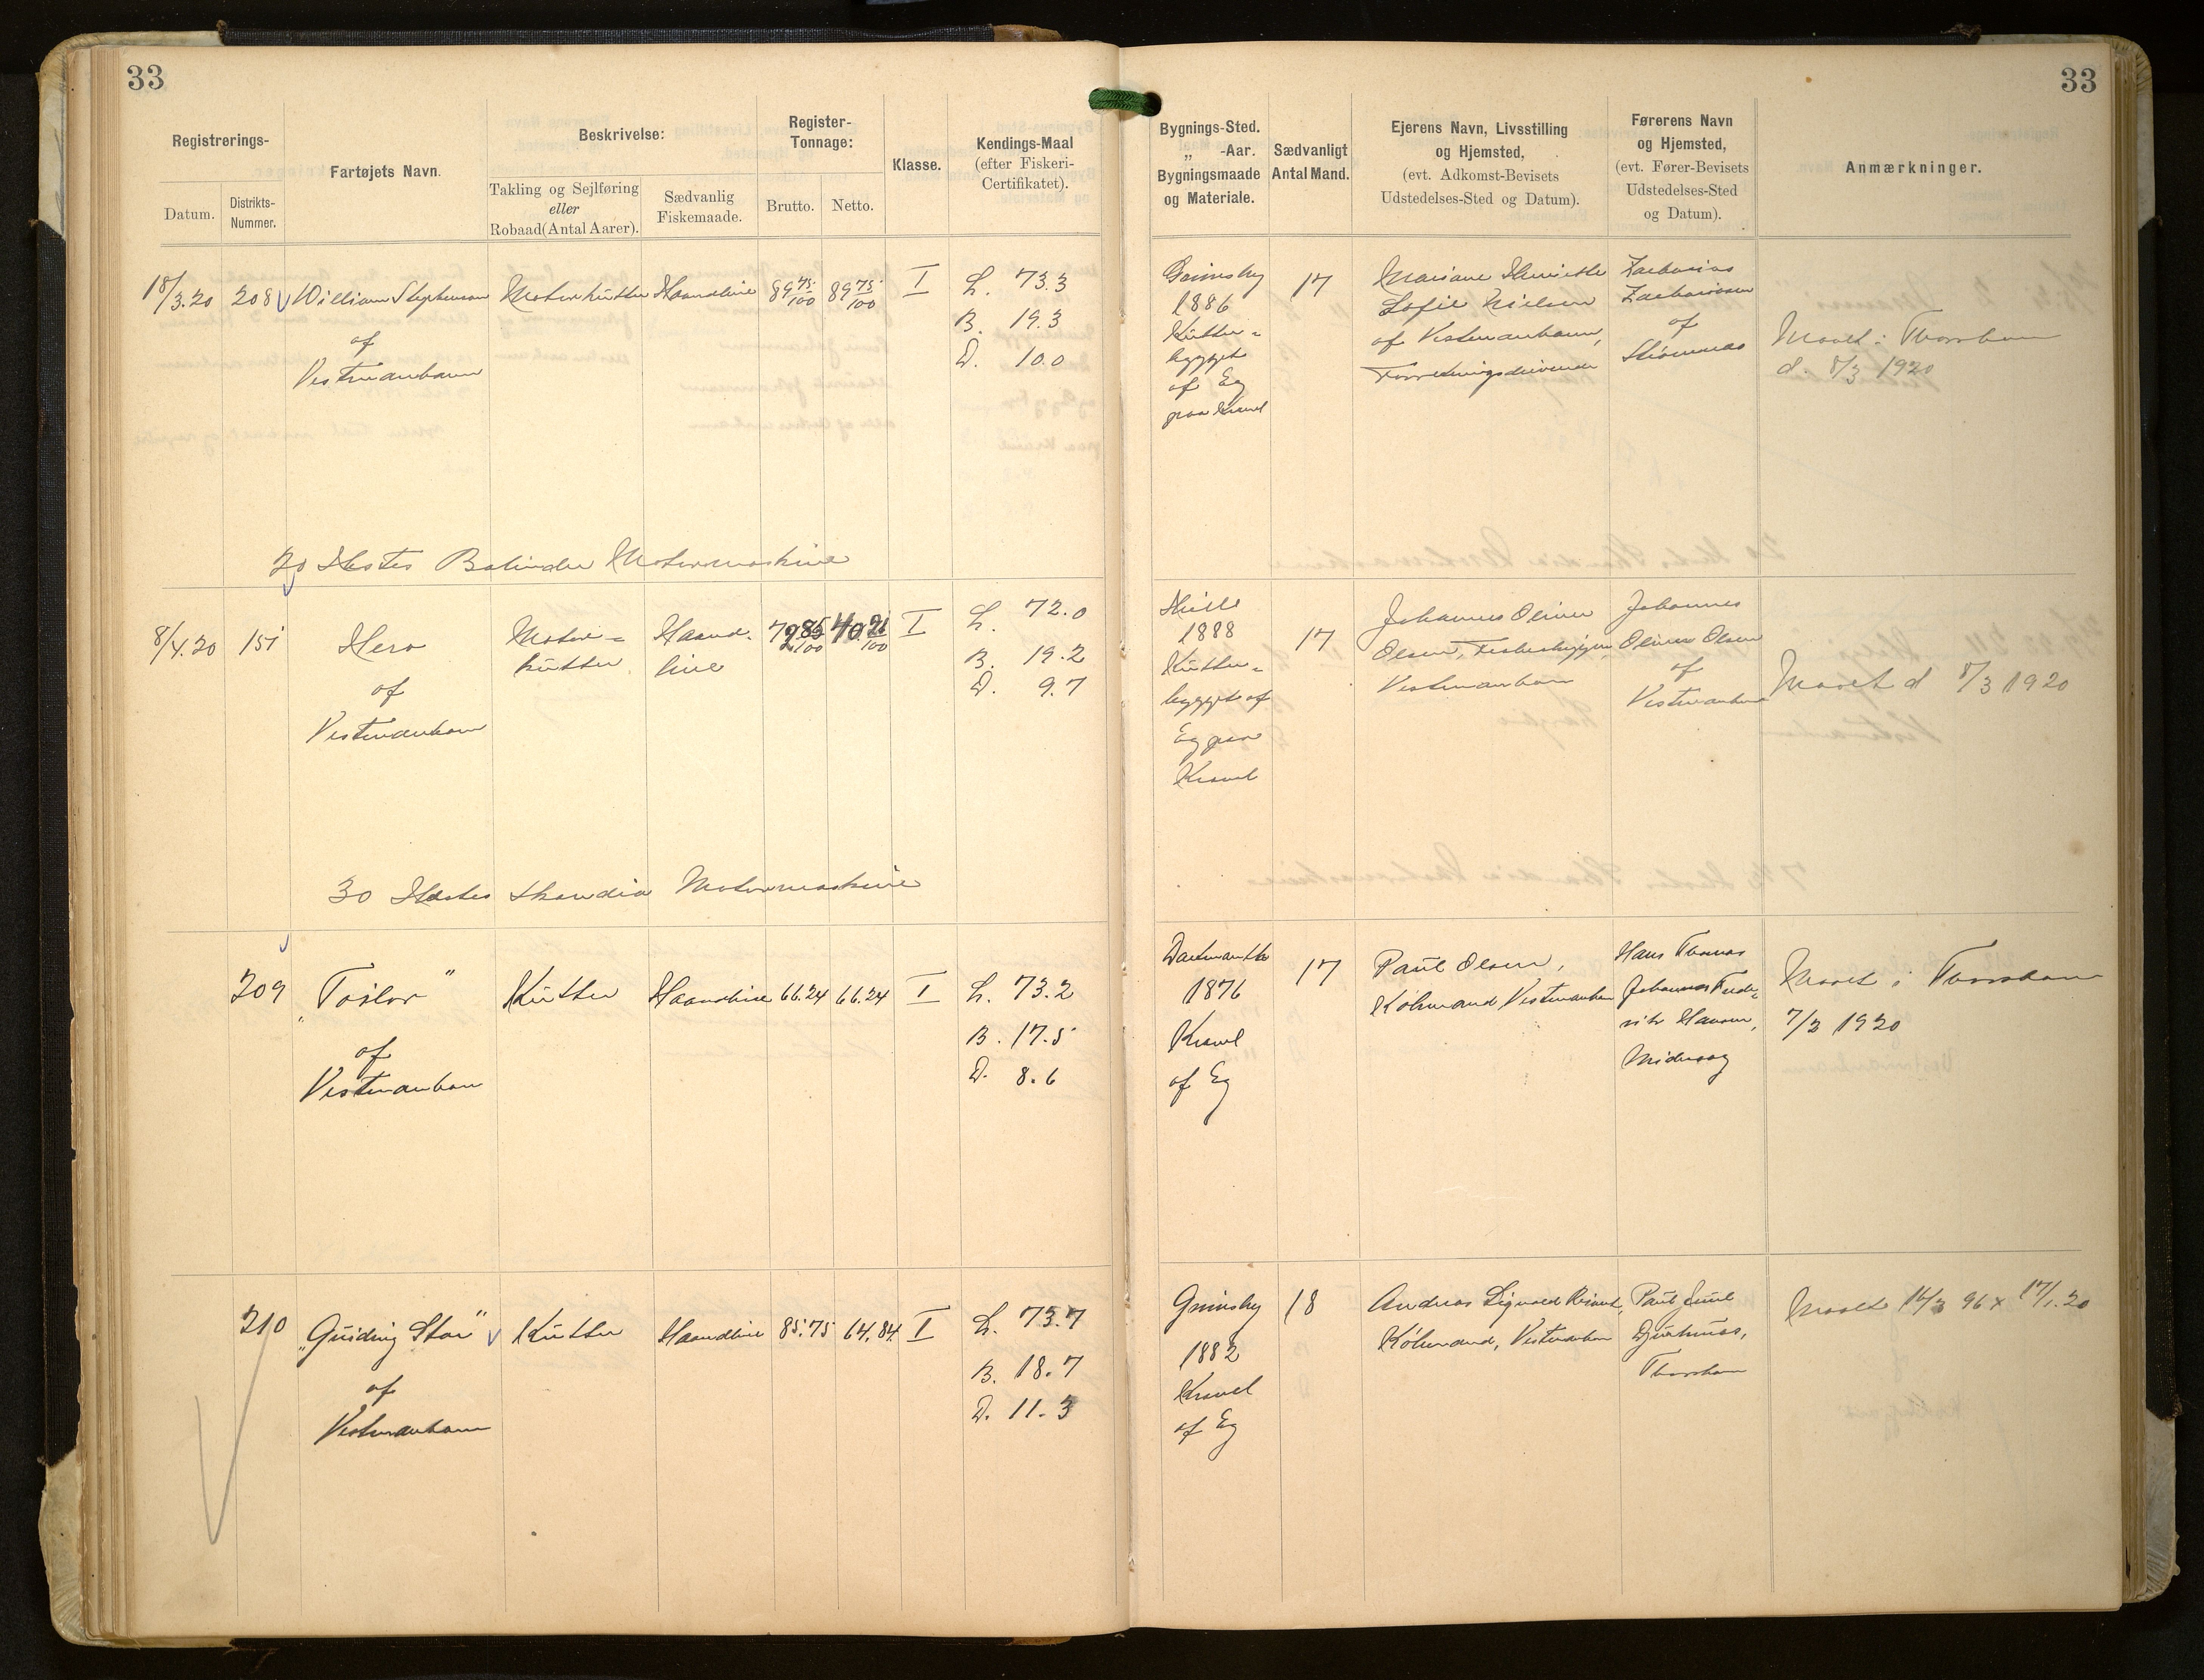 33
33
Registrerings-
Datum.
Distrikts-
Nummer.
Fartøjets Navn.
Beskrivelse:
Takling og Sejlføring
eller
Robaad(Antal Aarer).
Sædvanlig
Fiskemaade.
Register-
Tonnage:
Brutto.
Netto.
Klasse.
Kendings-Maal
(efter Fiskeri-
Certifikatet).
Bygnings-Sted.
„ -Aar.
Bygningsmaade
og Materiale.
Sædvanligt
Antal Mand.
Ejerens Navn, Livsstilling
og Hjemsted,
(evt. Adkomst-Bevisets
Udstedelses-Sted og Datum).
Førerens Navn
og Hjemsted,
(evt. Fører-Bevisets
Udstedelses-Sted
og Datum).
Anmærkninger.
18/3.20
208
William Stephenson
of
Vestmanhavn
Motorkutter
Haandline
89 75/100
89 75/100
I
L. 73.3
B. 19.3
D. 10.0
Grimsby
1886
Kutter-
bygget
af Eg
paa Kravel
17
Mariane Henriette
Sofie Nielsen
af Vestmanhavn,
Forretningsdrivende
Zacharias
Zachariasen
of
Strømnæs
Maalt i Thorshavn
d. 8/3 1920
20 Hestes Bolinder Motormaskine
8/4.20
151
Hero
of
Vestmanhavn
Motor-
kutter
Haand-
line
I
L. 72.0
B. 19.2
D. 9.7
Hull
1888
Kutter-
bygget af
Eg paa
Kravel
17
Johannes Oliver
Olsen, Fiskeskipper
Vestmanhavn
Johannes
Oliver Olsen
of
Vestmanhavn
Maalt d 8/3 1920
30 Hestes Skandia Motormaskine
209
„Toiler“
of
Vestmanhavn
Kutter
Haandline
66.24
66.24
I
L. 73.2
B. 17.5
D. 8.6
1876
Kravel
af Eg
17
Paul Olsen,
Købmand Vestmanhavn
Hans Thomas
Johannes Frede-
rik Hansen,
Midvaag
Maalt i Thorshavn
7/3 1920
210
„Guiding Star“
of
Vestmanhavn
Kutter
Haandline
85.75
64.84
I
L. 73.7
B. 18.7
D. 11.3
Grimsby
1882
Kravel
af Eg
18
Andreas Sigvald
Købmand, Vestmanhavn
Paul Juul
Djurhuus,
Thorshavn
Maalt 14/3 96 x 17/1.20